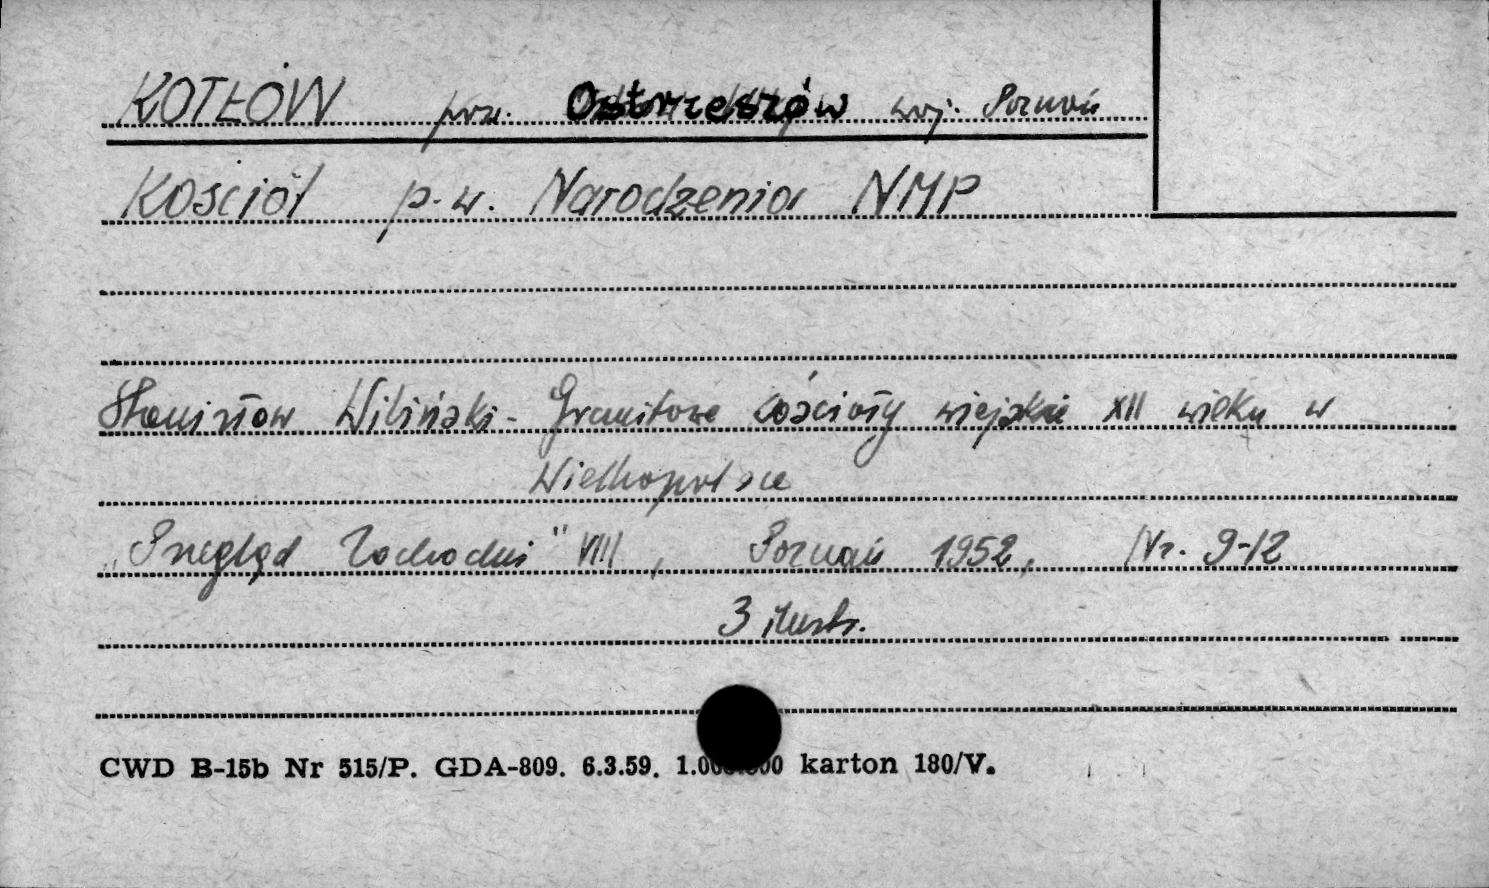 KOTŁÓW pow. Ostrzeszów woj. Poznań
Kościół p.w. Narodzenia NMP
Stanisław Wiliński - Granitowe kościoły wiejskie XII wieku w
Wielkopolsce
„Przegląd Zachodni" VIII, Poznań 1952, Nr. 9-12
3 ilustr.
CWD B-15b Nr 515/P. GDA-809. 6.3.59. 1.000.000 karton 180/V.